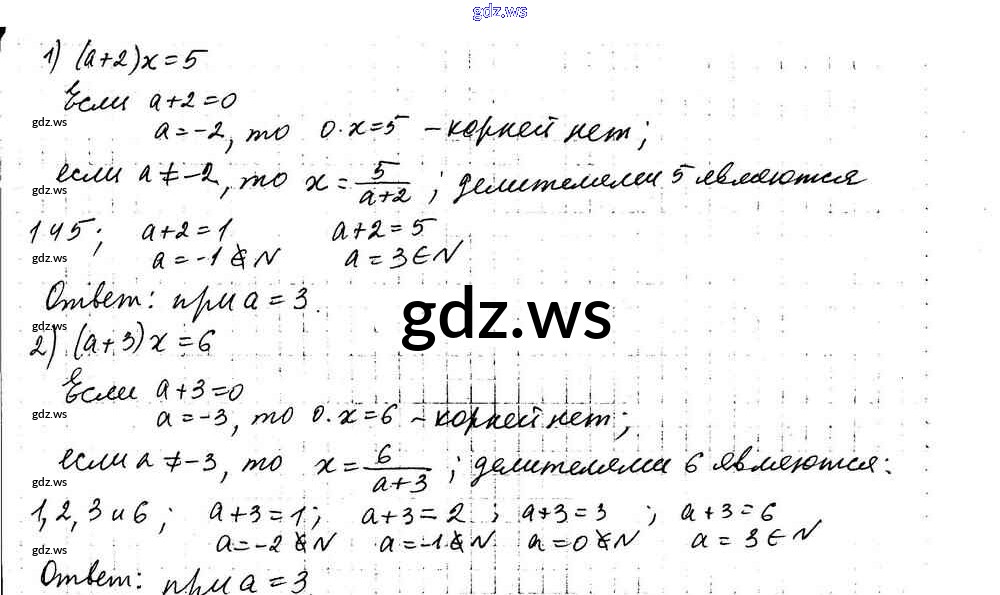 gdz.ws
1) (a+2)x=5
Если a+2=0
gdz.ws
a=-2, то 0·x=5 – корней нет;
если a≠-2, то x=5/(a+2); делителями 5 являются
gdz.ws
1 и 5; a+2=1 a+2=5
gdz.ws
a=-1∉N a=3∈N
Ответ: при a=3.
gdz.ws
gdz.ws
2) (a+3)x=6
Если a+3=0
gdz.ws
a=-3, то 0·x=6 – корней нет;
если a≠-3, то x=6/(a+3); делителями 6 являются:
gdz.ws
1, 2, 3 и 6; a+3=1; a+3=2; a+3=3; a+3=6
gdz.ws
a=-2∉N a=-1∉N a=0∉N a=3∈N
Ответ: при a=3